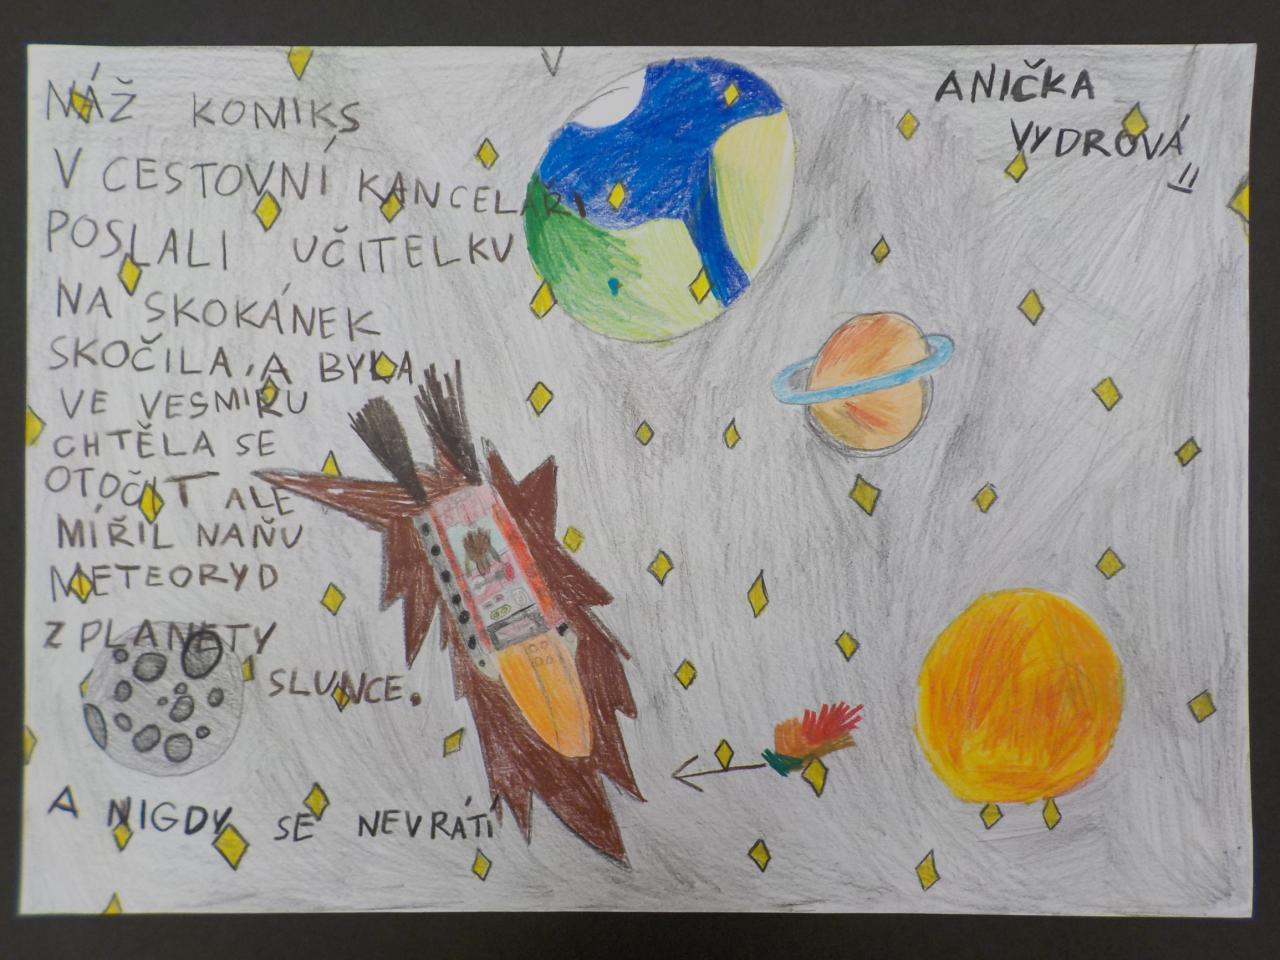 NÁŽ KOMIKS
V CESTOVNÍ KANCELÁŘI
POSLALI UČITELKU
NA SKOKÁNEK
SKOČILA, A BYLA
VE VESMÍRU
CHTĚLA SE
OTOČIT ALE
MÍŘIL NAŇU
METEORYD
Z PLANETY
SLUNCE.
A NIGDY SE NEVRÁTÍ
ANIČKA
VYDROVÁ